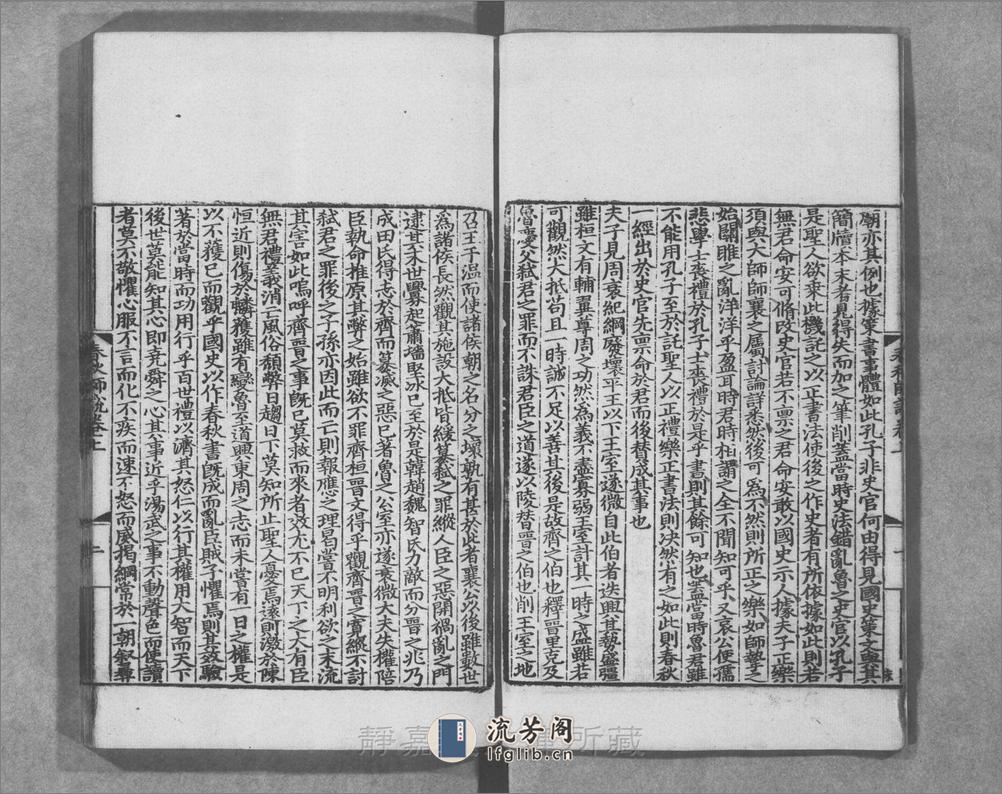 廟亦其例也據筆書事體如此孔子非史官何由得見國史策文與其
簡牘本末者見得失而加之筆削蓋當時史法錯亂魯之史官以孔子
是聖人欲乘此機託之以正書法使後之作史者有所依據如此則若
無君命安可脩改史官若不禀之君命安敢以國史示人據夫子正樂
須與大師師襄之屬討論詳悉然後可爲不然則所正之樂如師摯之
始關雎之亂洋洋乎盈耳時君時相謂之全不聞知可乎又哀公使孺
悲學士喪禮於孔子士喪禮於是乎書則其餘可知也蓋當時魯君雖
不能用孔子至於託聖人以正禮樂正書法則决然有之如此則春秋
一經出於史官先禀命於君而後替成其事也
夫子見周衰紀綱廢壞平王以下王室遂微自此伯者迭興其勢盛彊
雖桓文有輔翼尊周之功然爲義不盡寡弱王室計其一時之盛雖若
可觀然大抵苟且一時誠不足以善其後是故齊之伯也釋晉里克及
魯慶父弑君之罪而不誅君臣之道遂以陵替晉之伯也削王室之地
召王于温而使諸侯朝之名分之壞孰有甚於此者襄公以後雖數世
爲諸侯長然觀其施設大抵皆緩簒弑之罪縱人臣之惡開禍亂之門
逮其末世釁起蕭墻堅冰已至於是韓趙魏智氏方敵而分晉之兆乃
成田氏得志於齊而簒滅之惡已著魯之公室亦遂衰微大夫失權陪
臣執命推原其弊之始雖欲不罪齊桓晉文得乎觀齊晉之實縱不討
弑君之罪後之子孫亦因此而亡則報應之理曷嘗不明利欲之末流
其害如此嗚呼齊晉之事旣已莫救而來者效尤不已天下之大有臣
無君禮義消亡風俗頽弊日趨日下莫知所止聖人憂焉遠則激於陳
恒近則傷於麟獲雖有變魯至道興東周之志而未嘗有一日之權是
以不獲已而觀乎國史以作春秋書旣成而亂臣賊子懼焉則其效驗
著於當時而功用行乎百世禮以濟其怒仁以行其權用大智而天下
後世莫能知其心即堯舜之心其事近乎湯武之事不動聲色而使讀
者莫不敬懼心服不言而化不疾而速不怒而威掲綱常於一朝叙彛
春秋師說卷上
二
静嘉 所藏
流芳阁
lfglib.cn